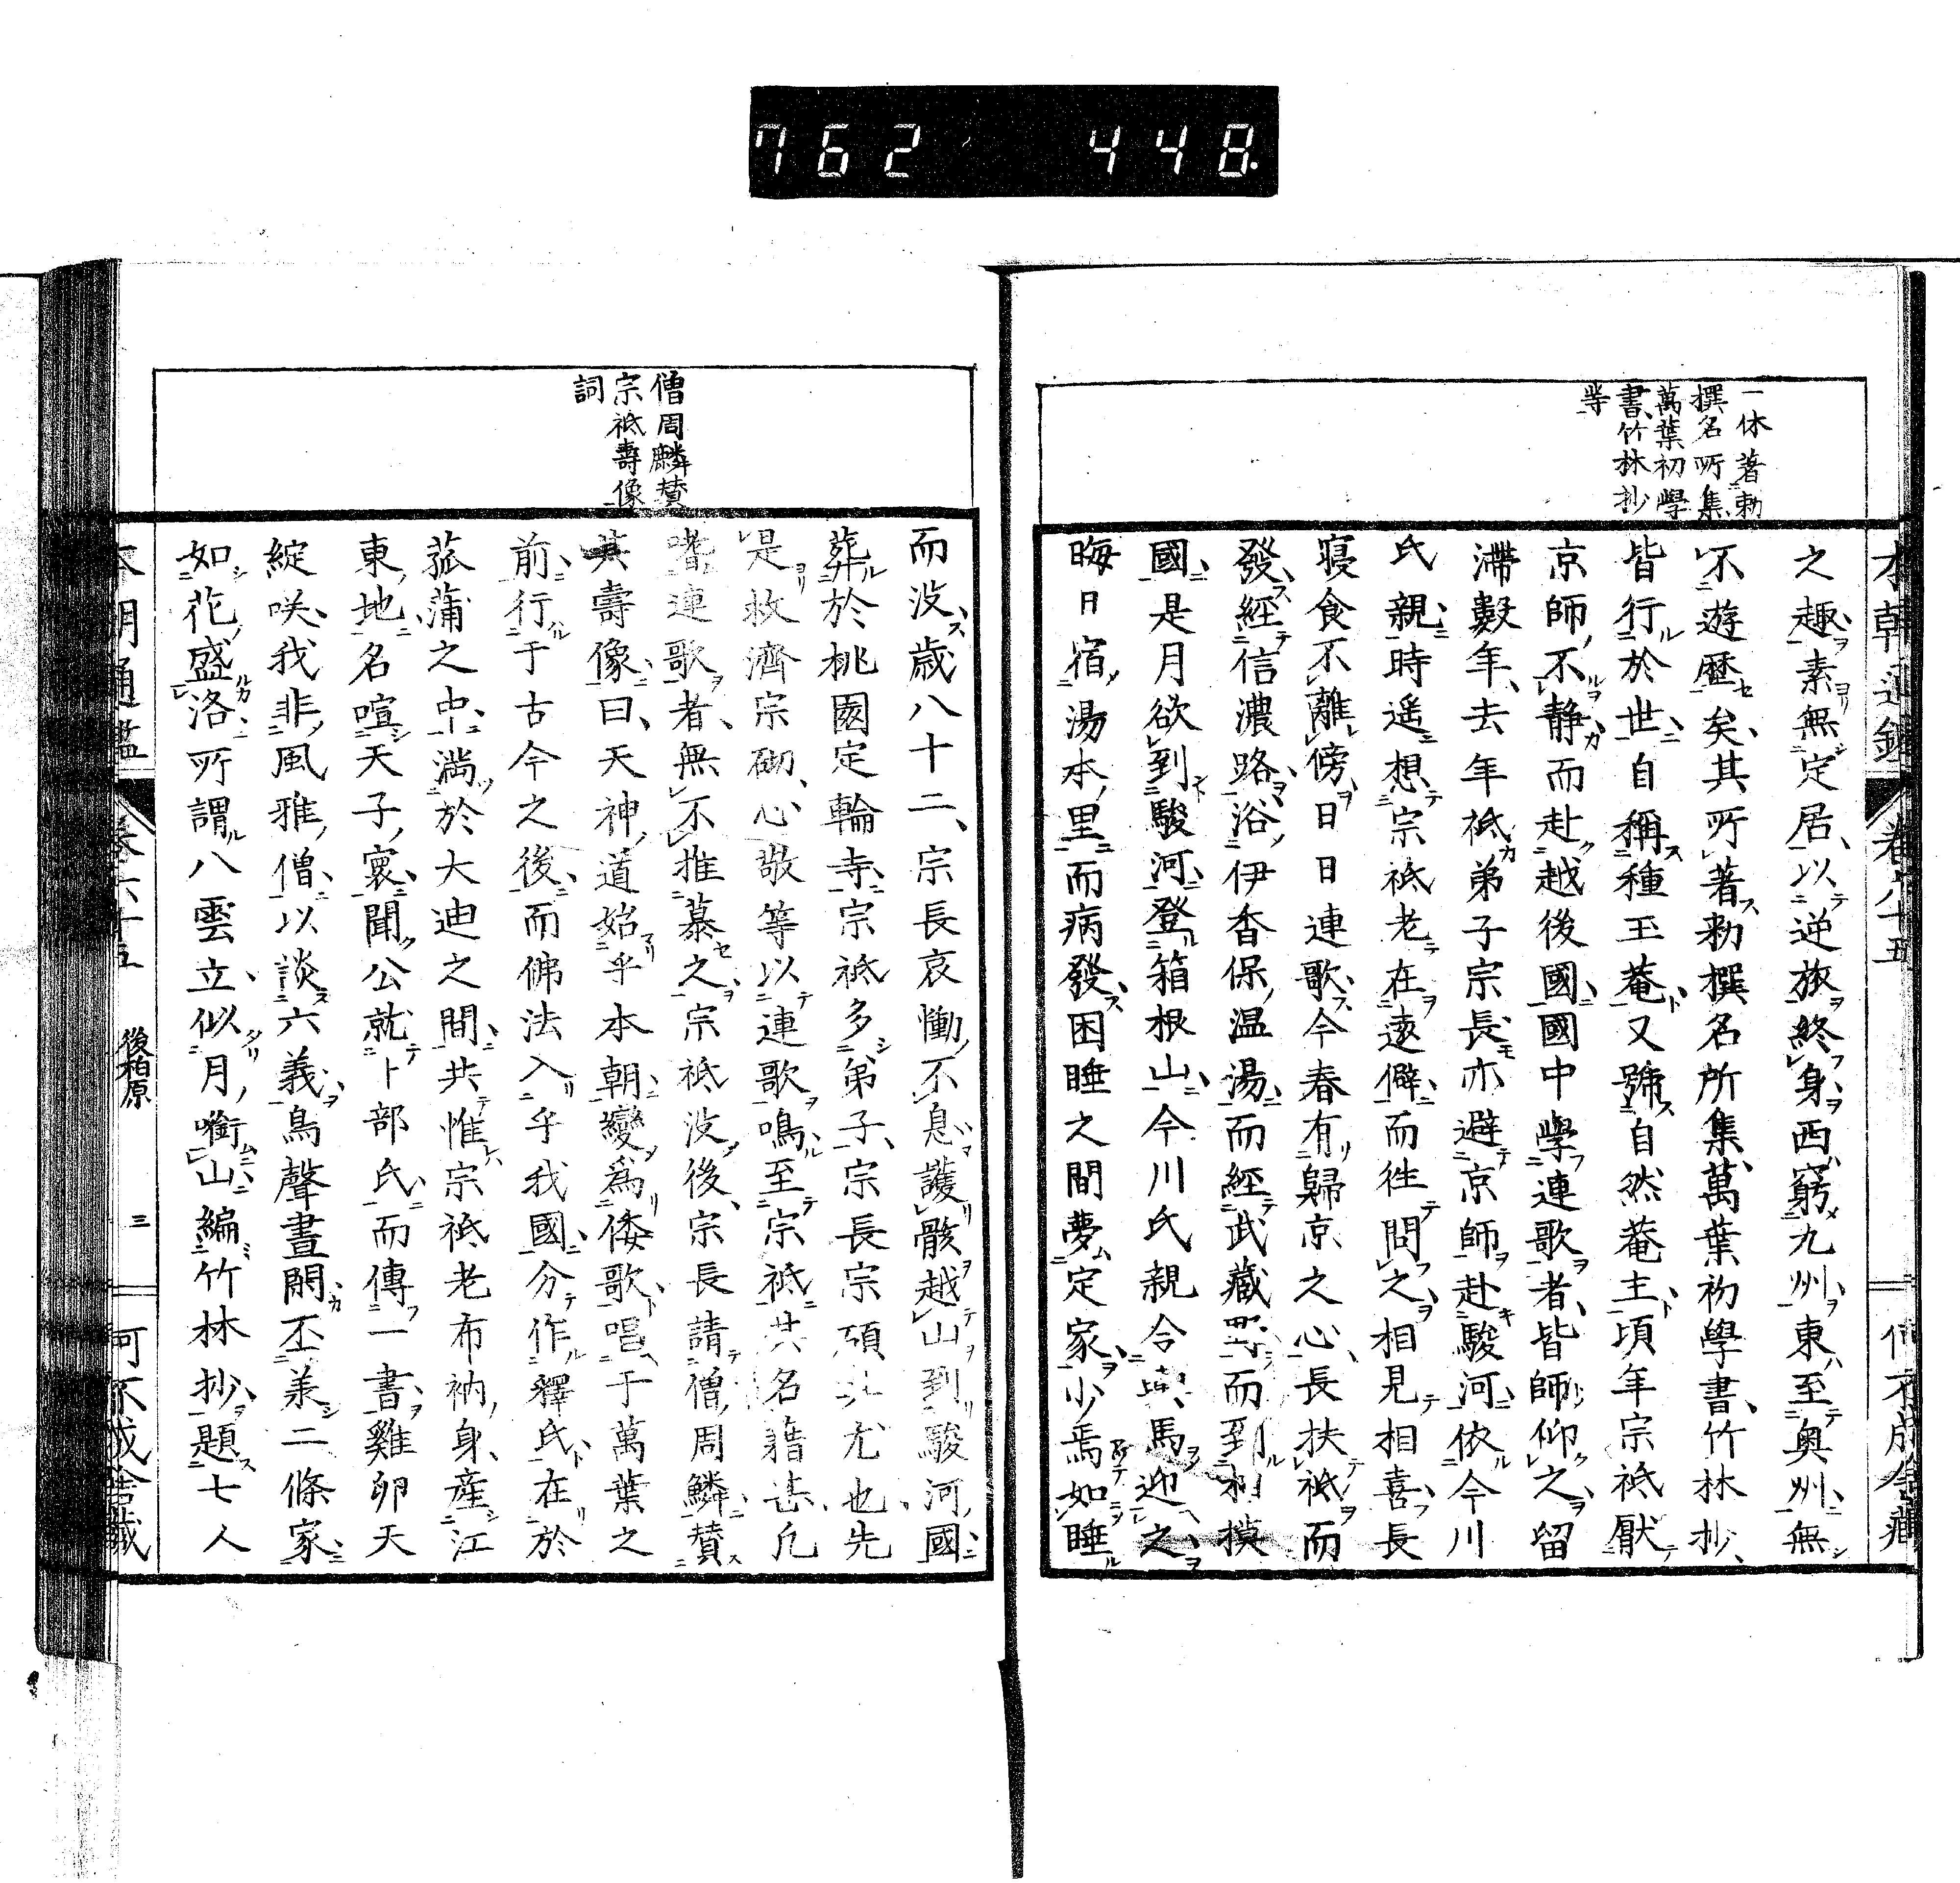 762 448
一休著勅
撰名所集
萬葉初學
書竹林抄
等
之趣素無定居以逆旅終身西窮九州東至奥州無
不遊歴矣其所著勅撰名所集萬葉初學書竹林抄
皆行於世自稱種玉菴又號自然菴主頃年宗祇厭
京師不静而赴越後國國中學連歌者皆師仰之留
滯數年去年祇弟子宗長亦避京師赴駿河依今川
氏親時遥想宗祇老在遠僻而往問之相見相喜長
寝食不離傍日日連歌今春有歸京之心長扶祇而
發經信濃路浴伊香保温湯而經武藏野而到相摸
國是月欲到駿河登箱根山今川氏親令輿馬迎之
晦日宿湯本里而病發困睡之間夢定家少焉如睡
僧周麟賛
宗祇壽像
詞
而没歳八十二宗長哀慟不息護骸越山到駿河國
葬於桃園定輪寺宗祇多弟子宗長宗碩尤也先
是救濟宗砌心敬等以連歌鳴至宗祇其名籍甚凡
嗜連歌者無不推慕之宗祇没後宗長請僧周麟賛
其壽像曰天神道始乎本朝變爲倭歌唱于萬葉之
前行于古今之後而佛法入乎我國分作釋氏在於
菰蒲之中満於大迪之間共惟宗祇老布衲身産江
東地名喧天子寰聞公就卜部氏而傳一書雞卵天
綻咲我非風雅僧以談六義鳥聲晝閑丕兼二條家
如花盛洛所謂八雲立似月嘲山編竹林抄題七人
本朝通鑑 卷六十五 後柏原 三